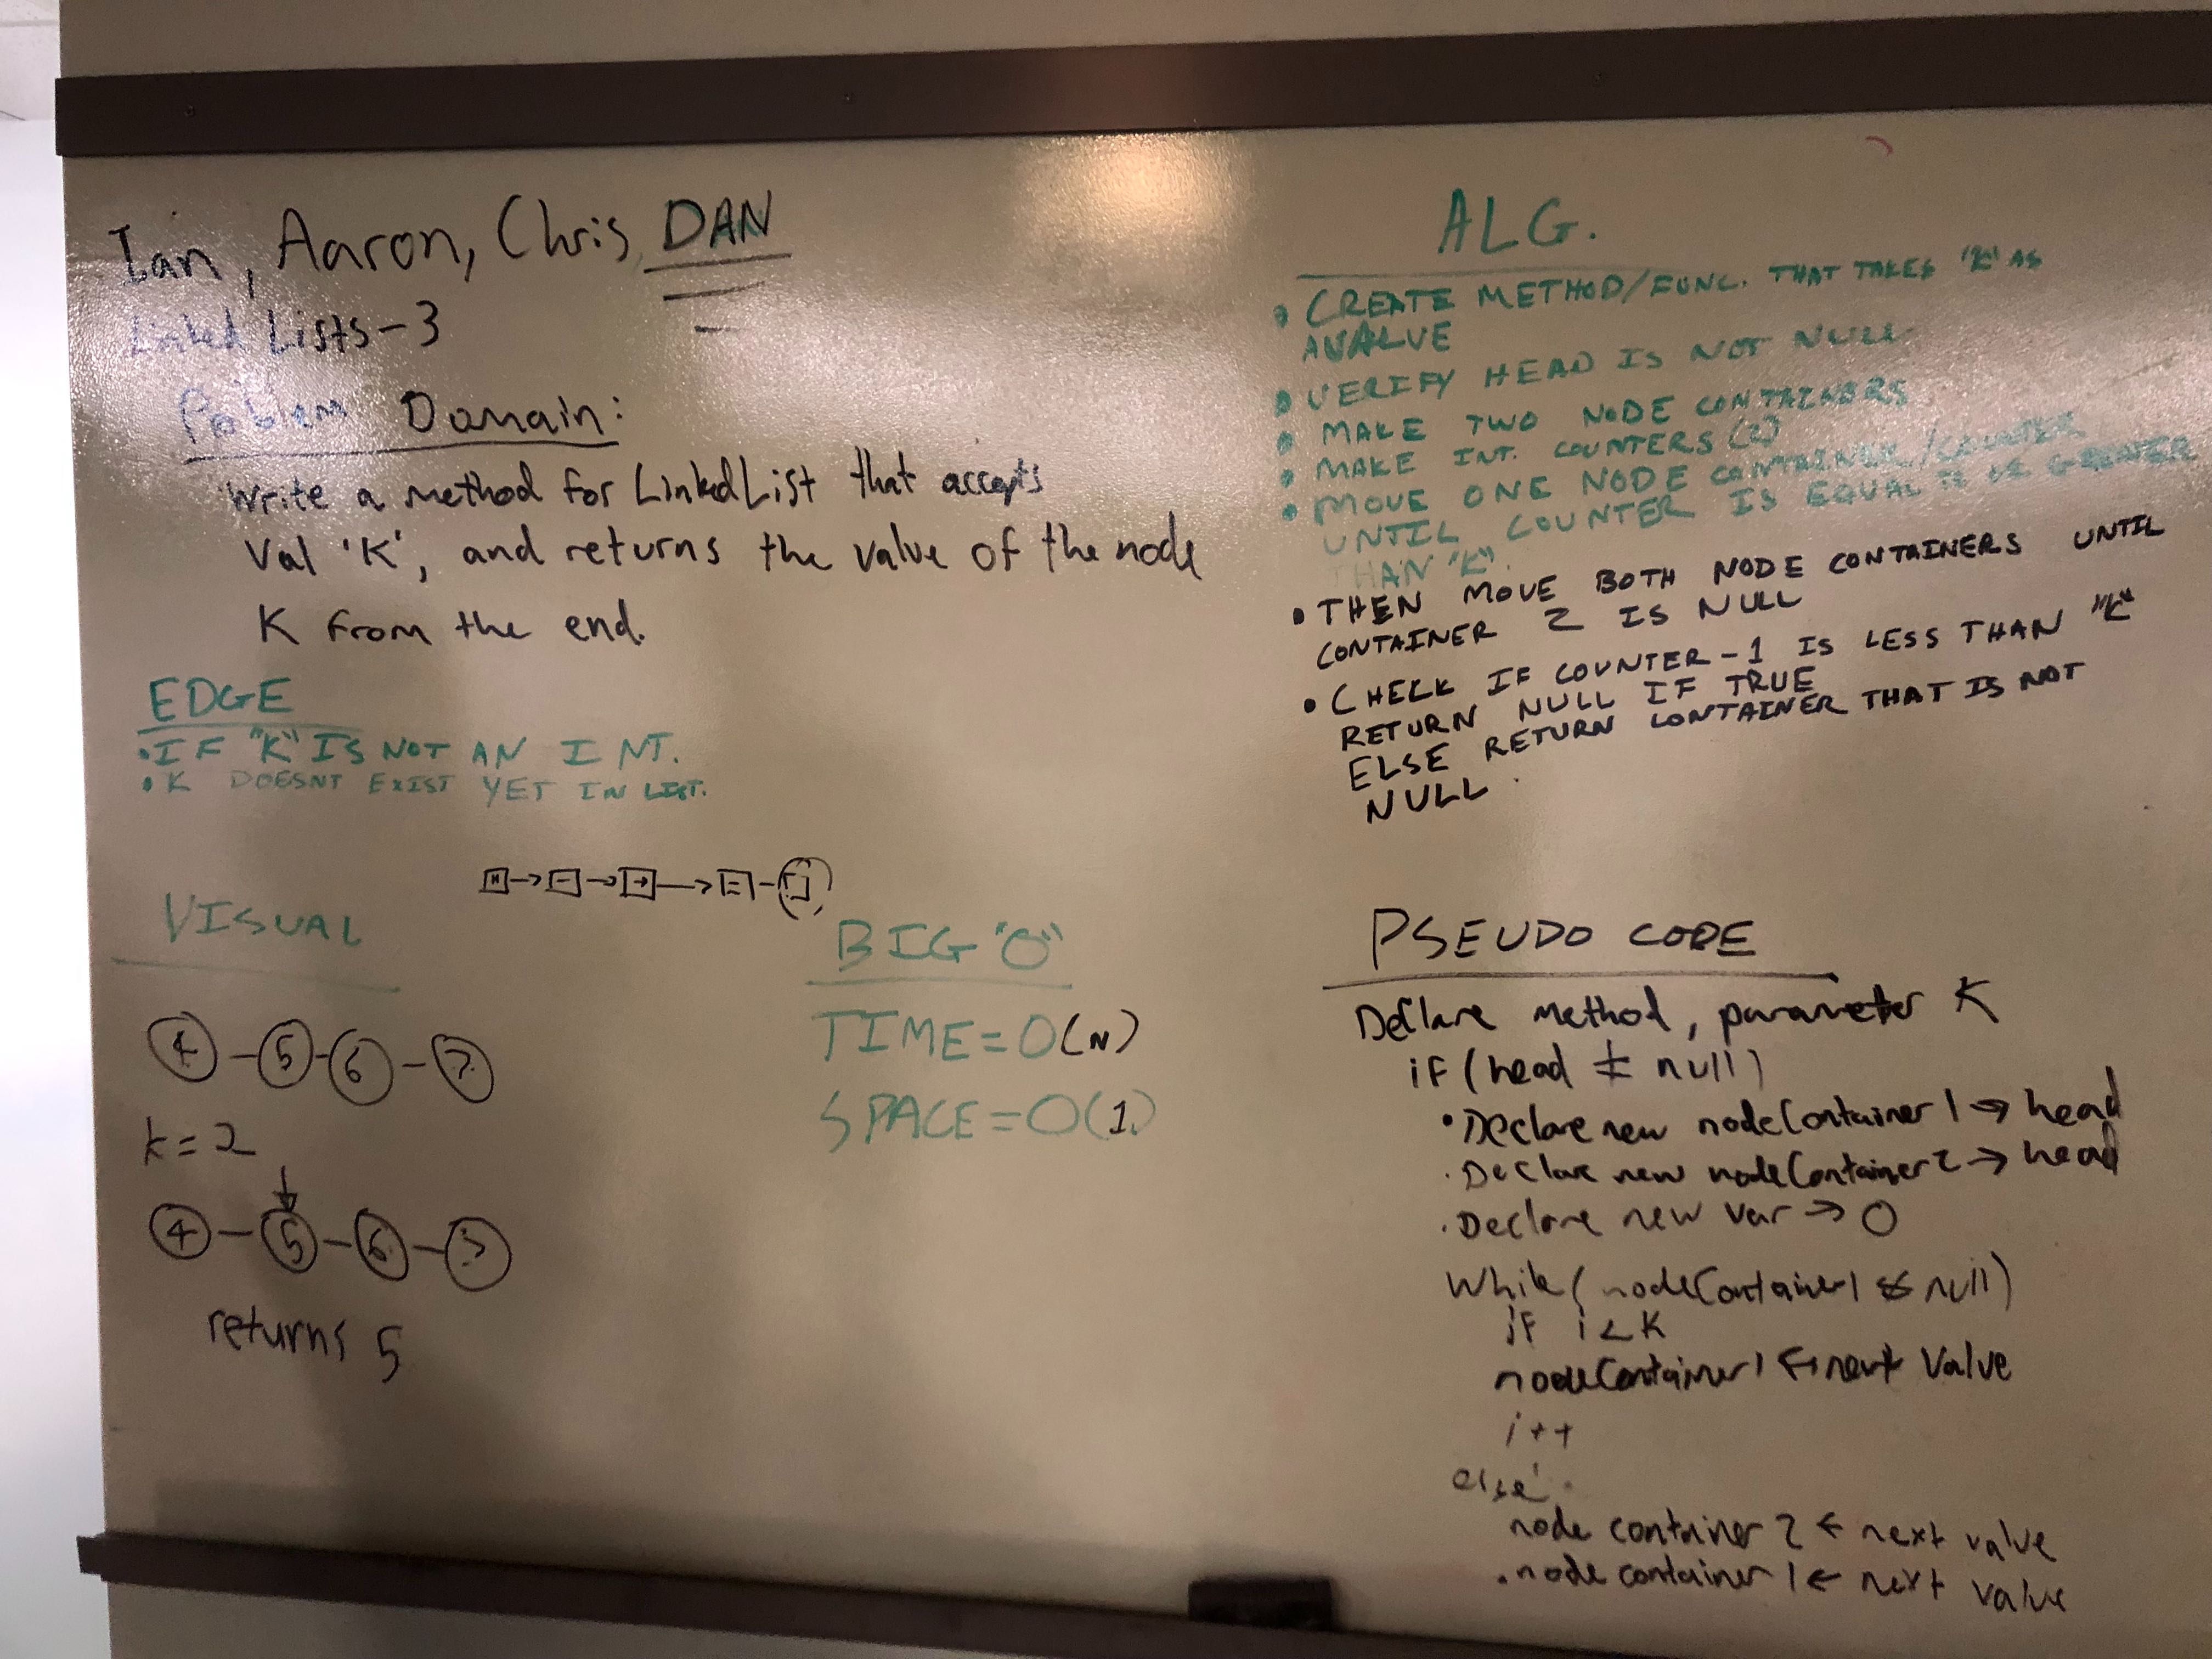 Ian, Aaron, Chris, DAN
Linked Lists-3
Problem Domain:
Write a method for LinkedList that accepts
Val 'K', and returns the value of the node
K from the end.
EDGE
• IF "K" IS NOT AN INT.
• K DOESNT EXIST YET IN LIST.
VISUAL
4 - 5 - 6 - 7
k = 2
4 - 5 - 6 - 7
returns 5
BIG "O"
TIME = O(N)
SPACE = O(1)
ALG.
• CREATE METHOD/FUNC. THAT TAKES "K" AS
A VALUE
• VERIFY HEAD IS NOT NULL
• MAKE TWO NODE CONTAINERS
• MAKE INT. COUNTERS (2)
• MOVE ONE NODE CONTAINER/COUNTER
UNTIL COUNTER IS EQUAL TO OR GREATER
THAN "K".
• THEN MOVE BOTH NODE CONTAINERS UNTIL
CONTAINER 2 IS NULL
• CHECK IF COUNTER-1 IS LESS THAN "K"
RETURN NULL IF TRUE
ELSE RETURN CONTAINER THAT IS NOT
NULL.
PSEUDO CODE
Declare method, parameter K
if (head ≠ null)
• Declare new nodeContainer1 → head
. Declare new nodeContainer2 → head
. Declare new var → 0
While( nodeContainer1 null)
if i < K
nodeContainer1 ← next value
i++
else
node container 2 ← next value
. node container 1 ← next value